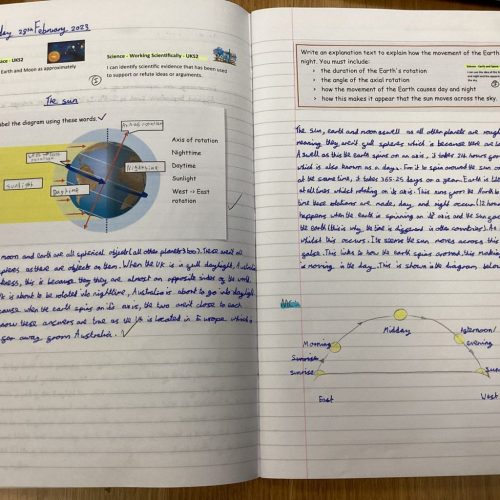 day 28th February 2023
ace - UKS2
Earth and Moon as approximately
Science - Working Scientifically - UKS2
I can identify scientific evidence that has been used
to support or refute ideas or arguments.
The sun
abel the diagram using these words.
Axis of rotation
Nighttime
Daytime
Sunlight
West -> East
rotation
Sunlight
Daytime
Nighttime
moon and Earth are all spherical objects (all other planets too).
spheres as there are objects on them. When the UK is in full daylight, Australia
this is because they are almost on opposite sides of the world.
UK is about to be rotated into nighttime, Australia is about to go into daylight
because when the earth spins on its axis, the two aren't close to each
know these answers are true as the UK is located in Europe which is
far away from Australia.
Write an explanation text to explain how the movement of the Earth
night. You must include:
• the duration of the Earth's rotation
• the angle of the axial rotation
• how the movement of the Earth causes day and night
• how this makes it appear that the sun moves across the sky.
The sun, earth and moon as well as all other planets are
meaning they aren't full spheres which is because
As well as this the earth spins on an axis, it takes 24 hours for
which is also known as a day. For it to spin around the sun
at the same time, it takes 365.25 days or a year. Earth is
at all times whilst rotating on its axis.
time these rotations are made, day and night occur (12 hours
happens when the earth is spinning on its axis and the sun
the earth (this is why the time is different in other countries). As
whilst this occurs. It seems the sun moves across the
false. This links to how the earth spins around, this making
is moving in the day. This is shown in the diagram below
Midday
Morning
Afternoon/
evening
Sunrise
sunrise
East
West